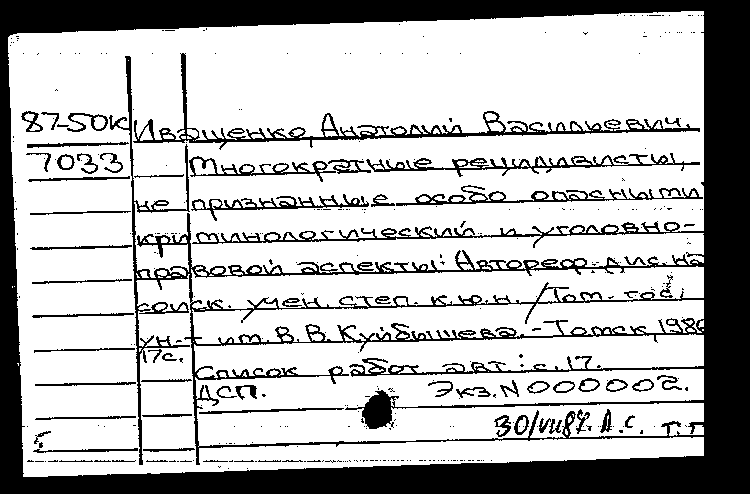 87-50К Иващенко, Анатолий Васильевич.
7033 Многократные рецидивисты,
не признанные особо опасными
криминологический и уголовно-
правовой аспекты: Автореф. дис. на
соиск. учен. степ. к.ю.н. / Том. гос.
ун-т им. В. В. Куйбышева. - Томск, 1986
17с.
Список работ авт.: с. 17.
ДСП. Экз. N 000002.
30/VII 87. А.С. Т.Т